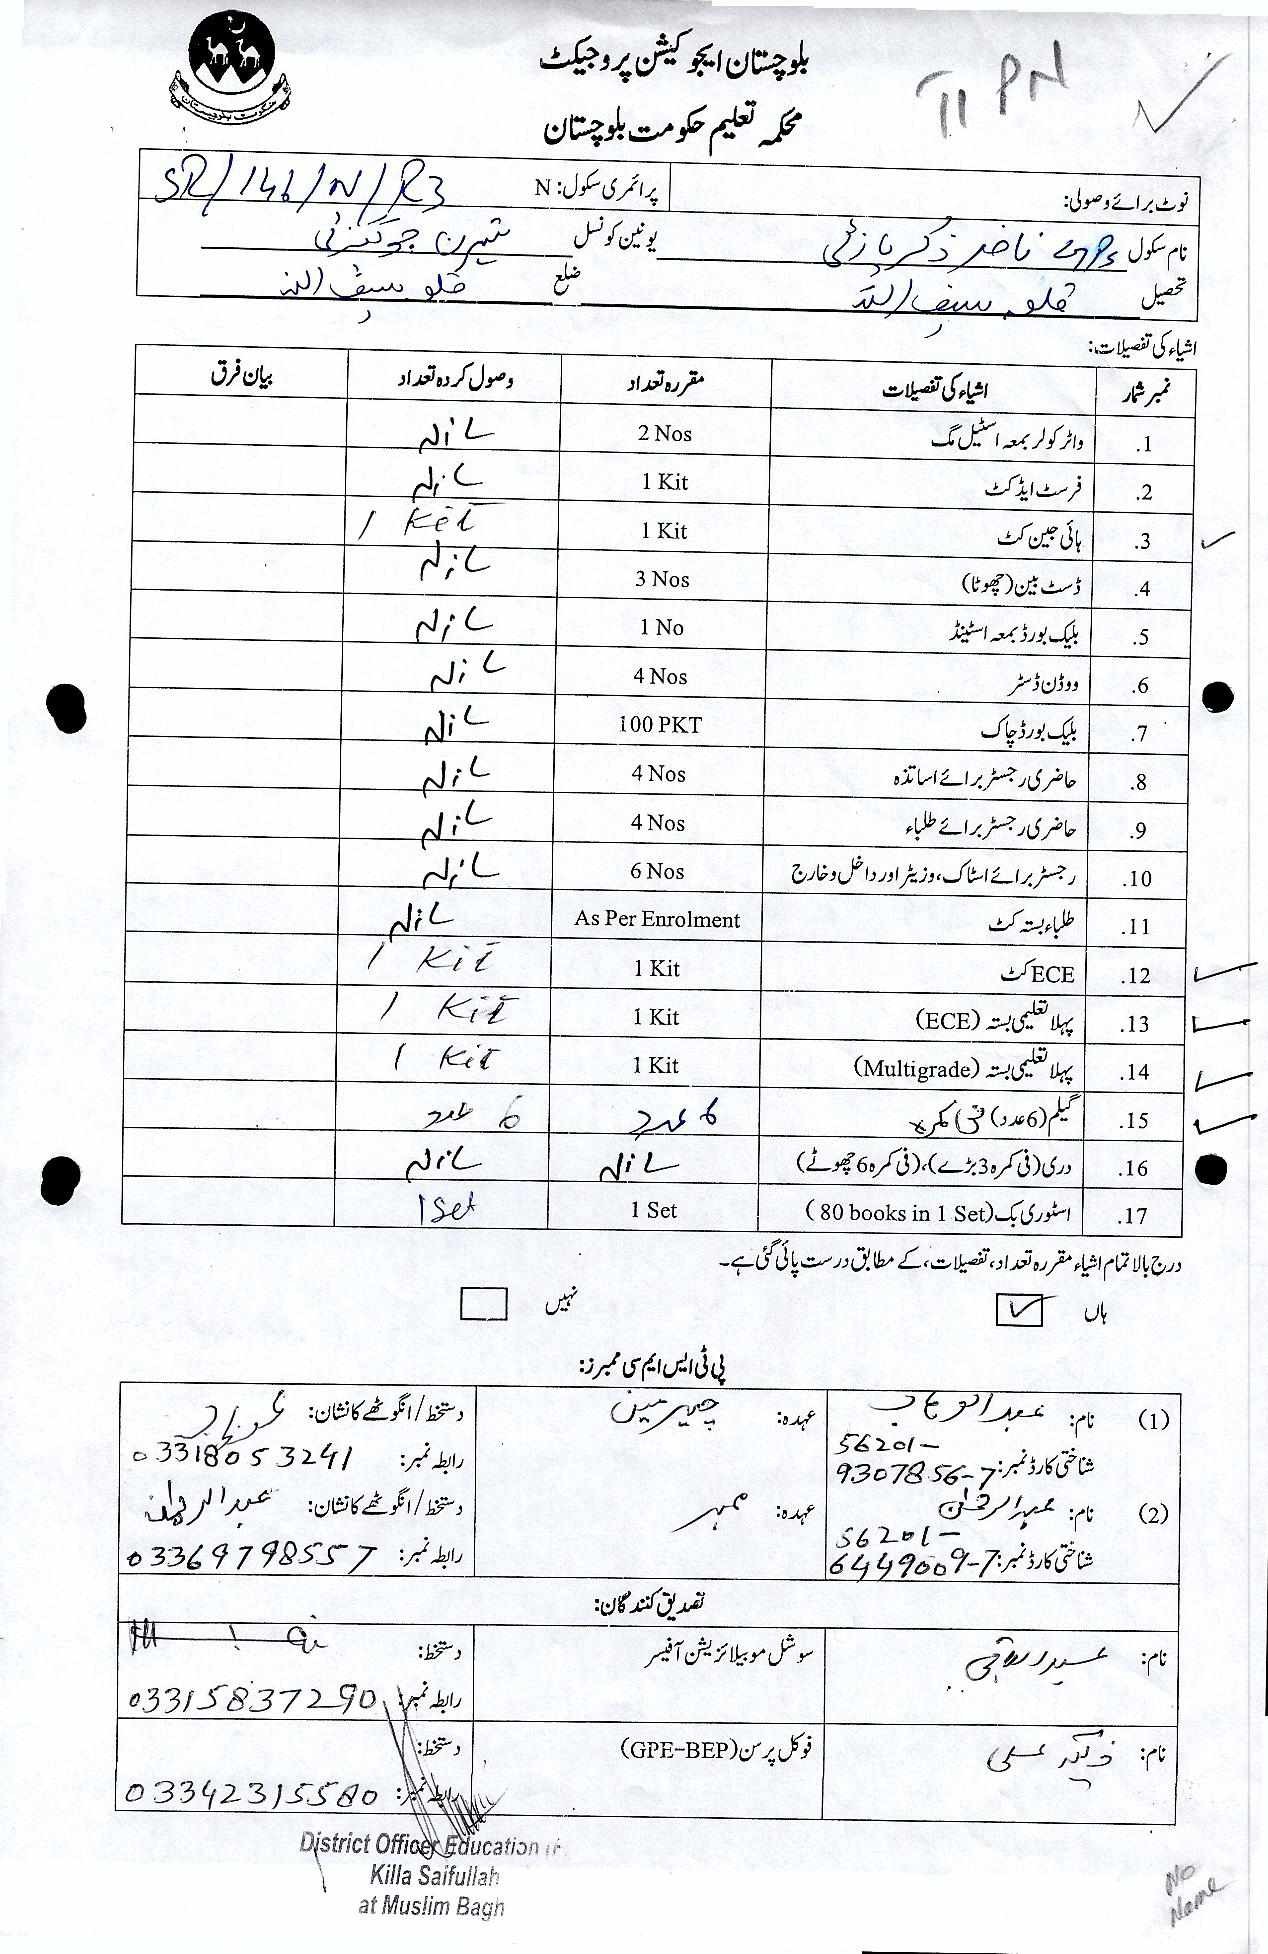 حکومت بلوچستان
بلوچستان ایجوکیشن پروجیکٹ
TI PN
محکمہ تعلیم حکومت بلوچستان
نوٹ برائے وصولی:
پرائمری سکول: N SR/146/N/R3
نام سکول GPS ناصر ذکریازئی یونین کونسل شیرن جوگیزئی
تحصیل قلعہ سیف اللہ ضلع قلعہ سیف اللہ
اشیاء کی تفصیلات:
نمبر شمار اشیاء کی تفصیلات مقررہ تعداد وصول کردہ تعداد بیان فرق
1. واٹر کولر بمعہ اسٹیل مگ 2 Nos Nil
2. فرسٹ ایڈ کٹ 1 Kit Nil
3. ہائی جین کٹ 1 Kit 1 Kit
4. ڈسٹ بین (چھوٹا) 3 Nos Nil
5. بلیک بورڈ بمعہ اسٹینڈ 1 No Nil
6. ووڈن ڈسٹر 4 Nos Nil
7. بلیک بورڈ چاک 100 PKT Nil
8. حاضری رجسٹر برائے اساتذہ 4 Nos Nil
9. حاضری رجسٹر برائے طلباء 4 Nos Nil
10. رجسٹر برائے اسٹاک، وزیٹر اور داخل و خارج 6 Nos Nil
11. طلباء بستہ کٹ As Per Enrolment Nil
12. ECE کٹ 1 Kit 1 Kit
13. پہلا تعلیمی بستہ (ECE) 1 Kit 1 Kit
14. پہلا تعلیمی بستہ (Multigrade) 1 Kit 1 Kit
15. گیلم (6 عدد) فی کمرہ 6 عدد 6 عدد
16. دری (فی کمرہ 3 بڑے)، (فی کمرہ 6 چھوٹے) Nil Nil
17. اسٹوری بک (80 books in 1 Set) 1 Set 1 Set
درج بالا تمام اشیاء مقررہ تعداد، تفصیلات، کے مطابق درست پائی گئی ہے۔
ہاں نہیں
پی ٹی ایس ایم سی ممبرز:
(1) نام: عبدالوہاب عہدہ: چیئرمین دستخط/انگوٹھے کا نشان:
شناختی کارڈ نمبر: 56201-9307856-7 رابطہ نمبر: 03318053241
(2) نام: عبدالرحمٰن عہدہ: ممبر دستخط/انگوٹھے کا نشان: عبدالرحمان
شناختی کارڈ نمبر: 56201-6449009-7 رابطہ نمبر: 03369798557
تصدیق کنندگان:
نام: سوشل موبیلائزیشن آفیسر دستخط:
رابطہ نمبر: 03315837290
نام: ذاکر علی فوکل پرسن (GPE-BEP) دستخط:
رابطہ نمبر: 03342315580
District Officer Education
Killa Saifullah
at Muslim Bagh
No
Name